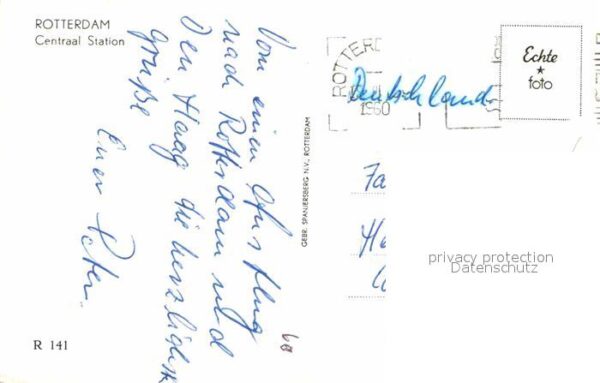 ROTTERDAM
Centraal Station
Von einem Ausflug
nach Rotterdam und
Den Haag die herzlichst
Grüße
Euer Peter
R 141
GEBR. SPANJERSBERG N.V., ROTTERDAM
60
ROTTERD
1960
Deutschland
Echte
foto
Fa
He
privacy protection
Datenschutz